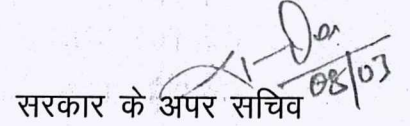 08/03
सरकार के अपर सचिव